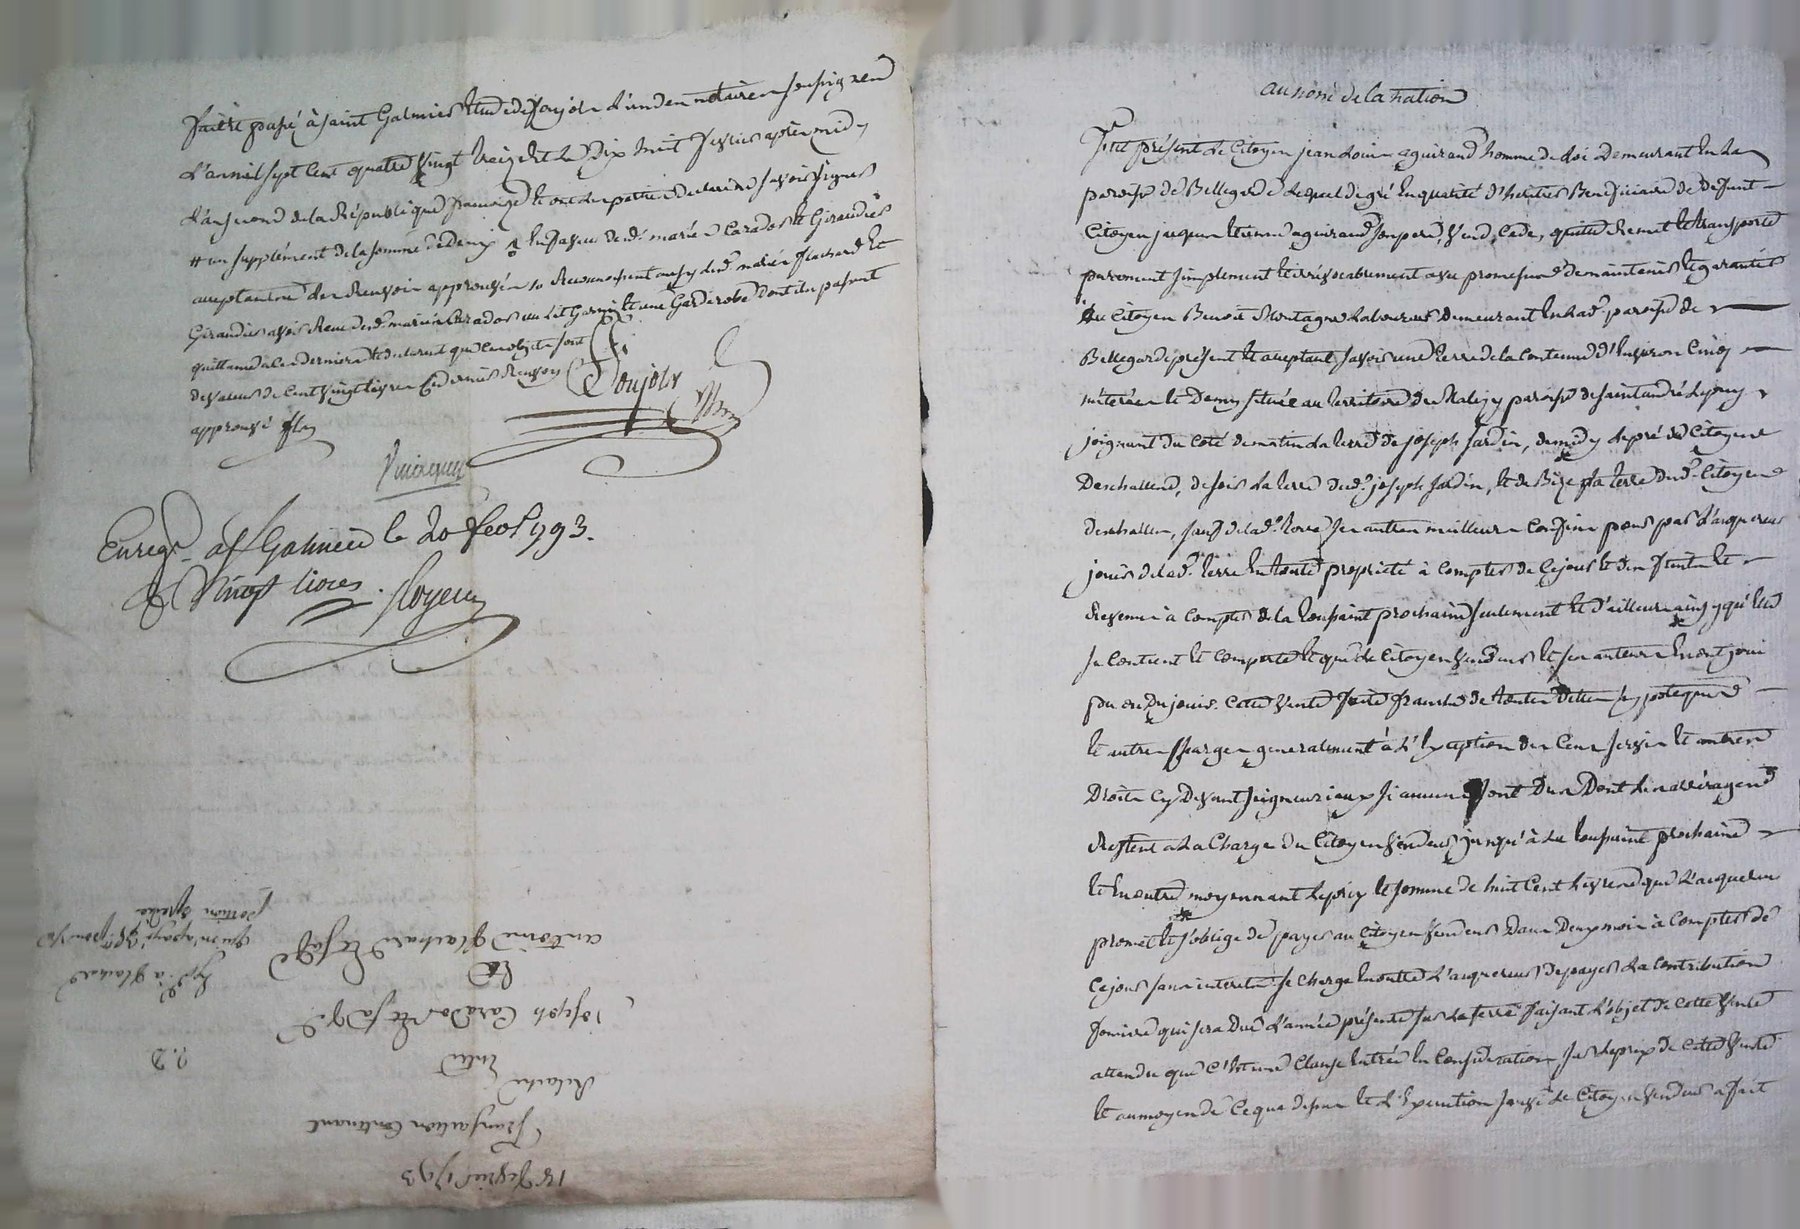 fait et passé à saint Galmier étude de Poujol l'un des notaires soussignés
l'an mil sept cent quatre vingt treize et le dix huit fevrier après midy
l'an second de la république française et ont les parties declaré savoir signer
# un supplément de la somme de deux en faveur de lad. marie Carados et Giraudier
acceptant les Renvois approuvés Reconnoissent aussy led. marie flachard et
Giraudier avoir Reçu de lad. marie Carados un lit garni et une Garderobe dont ils passent
quittance à la derniere et declarent que ces objets sont
de valeur de Cent Vingt Livres Ce dernier Renvoy
approuvé
Poujol
Enregr. à St Galmier le 20 fevr 1793.
R Vingt livres. Royer
18 fevrier 1793
Transaction Contenant
Relaché
Entre
Joseph Carados et sa
Et
antoine flachard et sa
au nom de la nation
Fut présent le Citoyen jean Louis aguiraud homme de loi demeurant en la
paroisse de Bellegarde lequel de gré en qualité d'heritier Beneficiaire de defunt
Citoyen jacques etienne aguiraud son pere, Vend, Cede, quitte Remet et transporte
purement simplement et irrévocablement avec promesse de maintenir et garantir
Au Citoyen Benoit Montagne Laboureur demeurant en lad. paroisse de
Bellegarde présent et acceptant, savoir une terre de la contenue d'Environ Cinq
meterées et Demy située au territoire de paroisse de saint andré le puy
joignant du coté de matin la terre de joseph jardin, de midy le pré du Citoyen
Deschallend, de soir la terre dud. joseph jardin, et de Bize la terre dud. Citoyen
deschallend, sauf de lad. terre ses autres meilleurs Confins pour par l'acquereur
jouir de lad. terre en toute propriété à compter de Ce jour et des fruits et
Revenus à compter de la toussaint prochaine seulement et d'ailleurs ainsy qu'elle
se Contient et comporte et que le Citoyen Vendeur et ses auteurs en ont joui
pu ou du jouir. Cette Vente faite franche de toutes dettes hypoteques
et autres Charges generalement à l'Exception des Cens servis et autres
Droits Cy Devant seigneuriaux si aucuns sont Dus Dont les arrérages
Restent à la Charge du Citoyen Vendeur jusqu'à la toussaint prochaine
et en outre moyennant le prix et somme de huit Cent Livres que l'acquereur
promet et s'oblige de payer au Citoyen Vendeur Dans Deux mois à compter de
Ce jour sans interets. se Charge en outre l'acquereur de payer la contribution
fonciere qui sera Due l'année présente sur la terre faisant l'objet de cette Vente
attendu que C'est une Clause entrée en Consideration sur le prix de cette Vente
et au moyen de Ce que dessus et de l'Execution le Citoyen Vendeur a fait